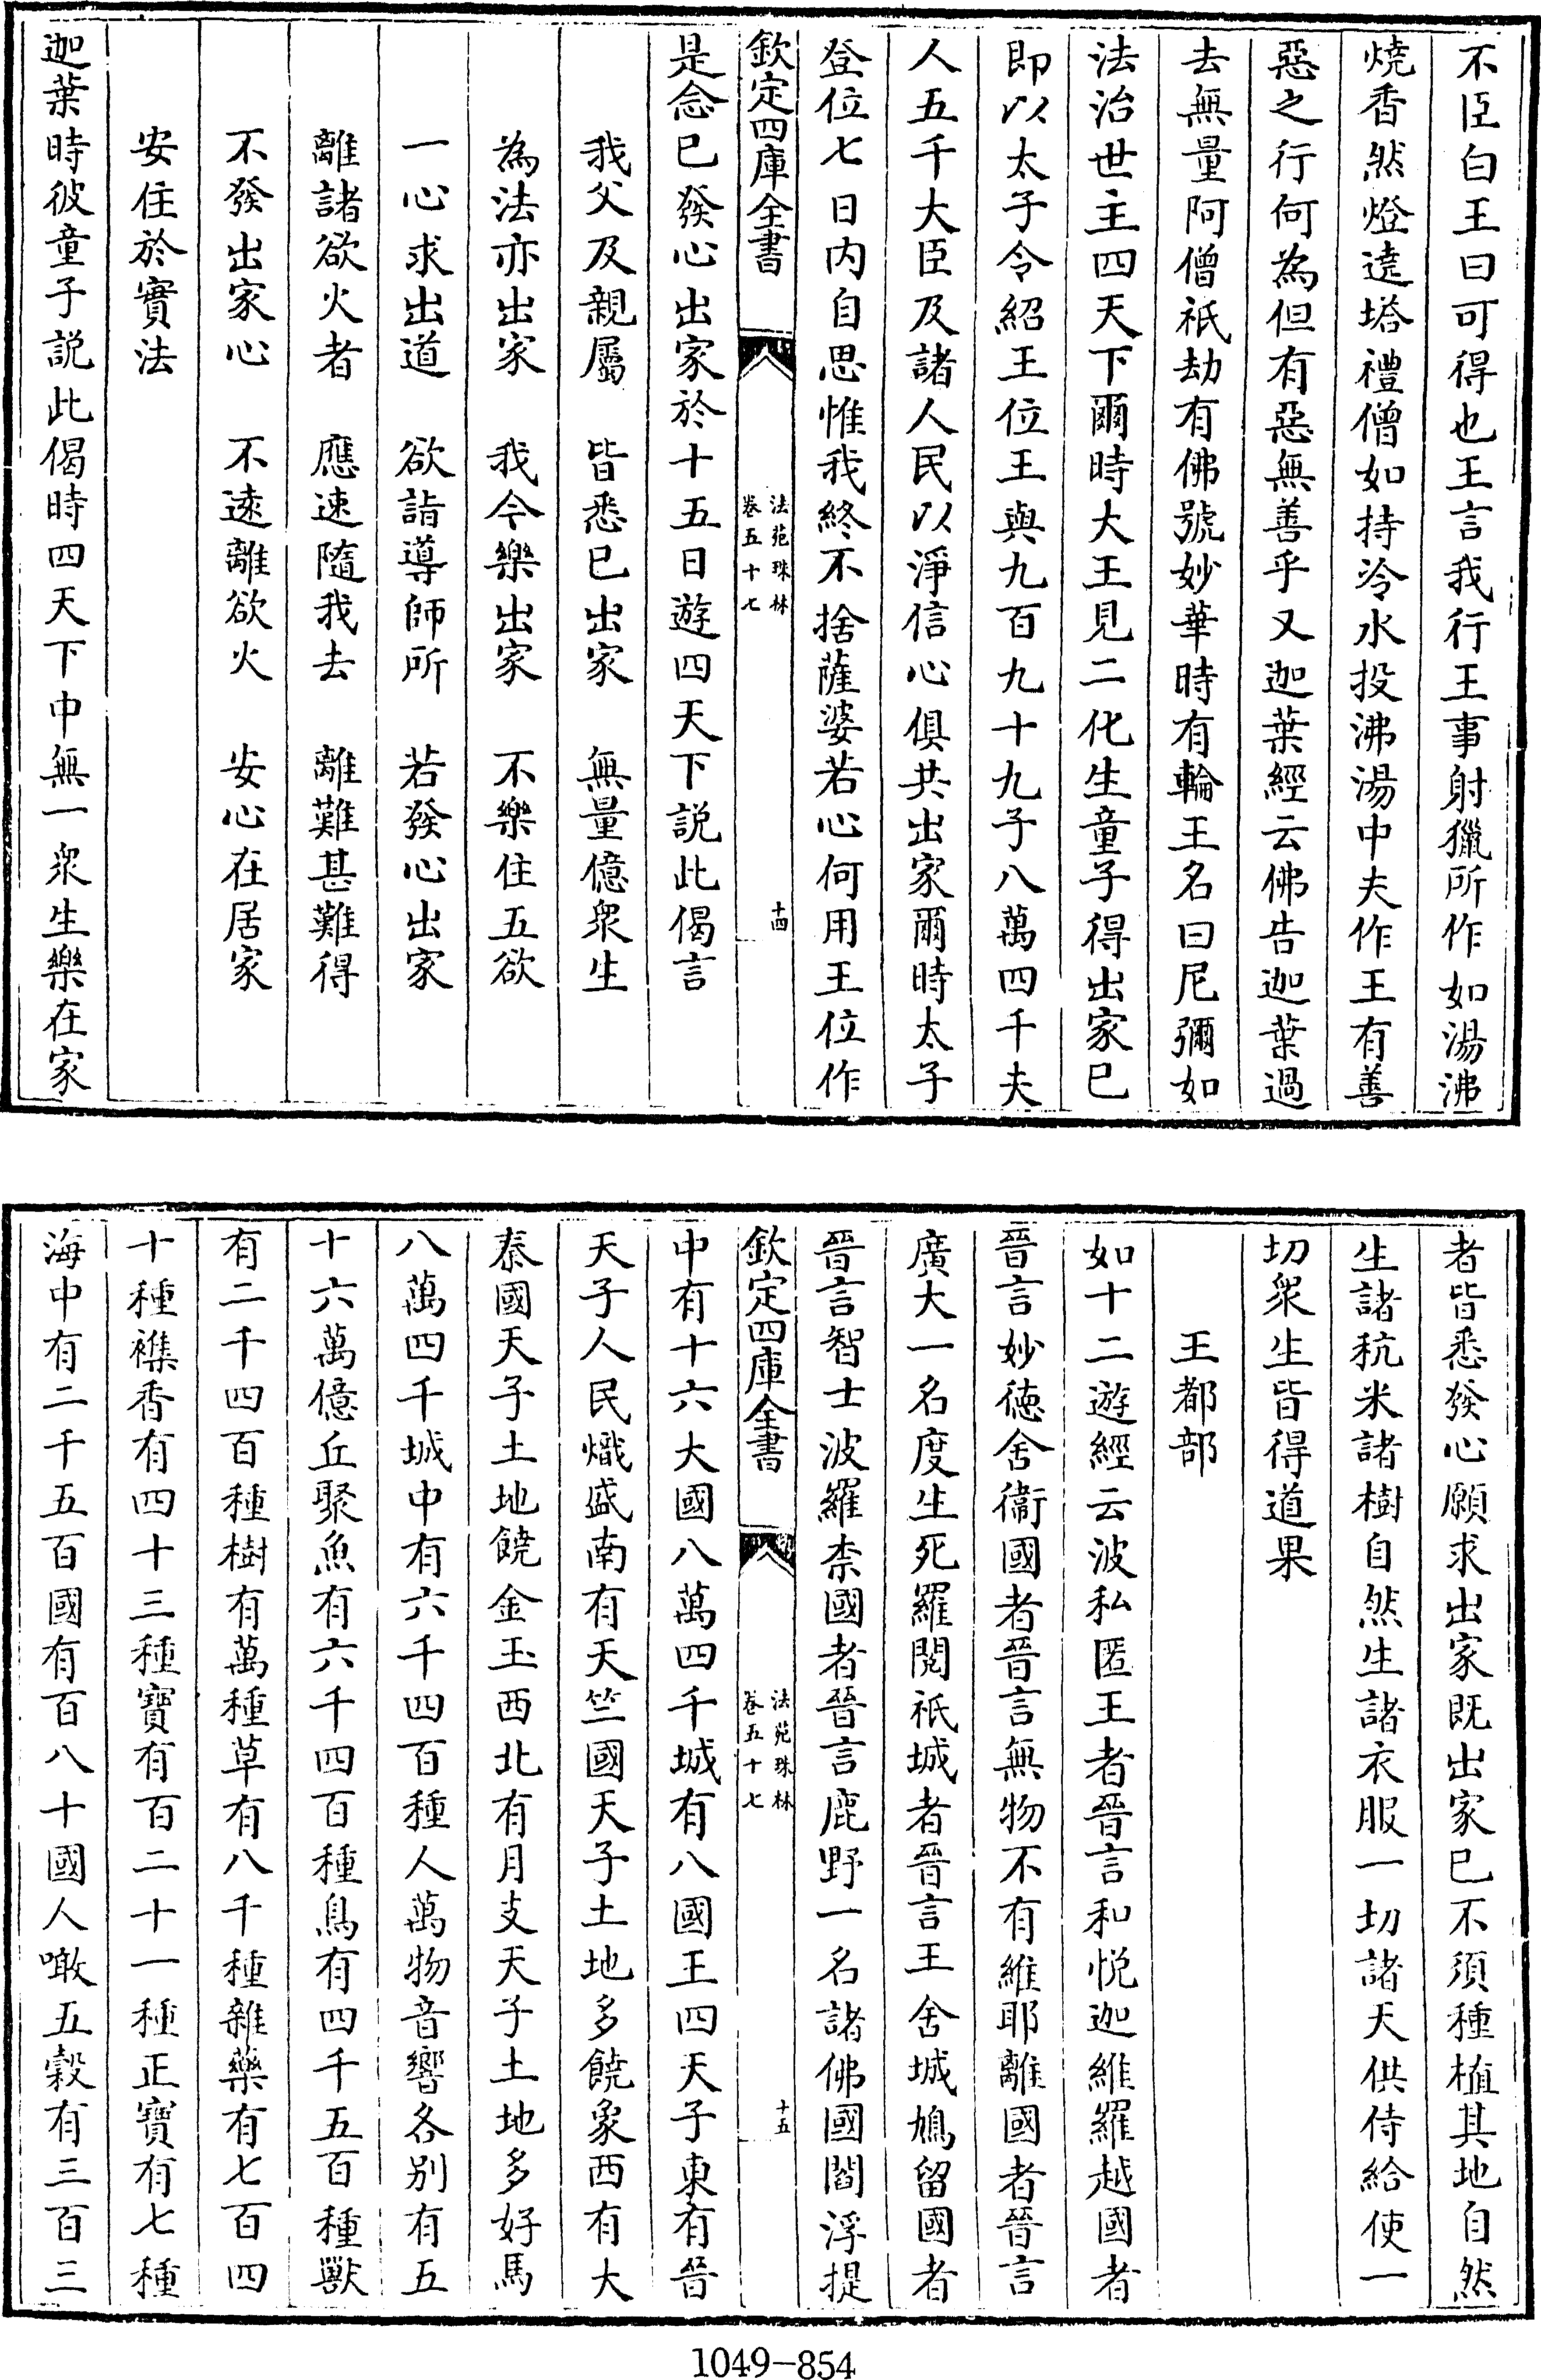 不臣白王曰可得也王言我行王事射獵所作如湯沸
燒香然燈遶塔禮僧如持冷水投沸湯中夫作王有善
惡之行何為但有惡無善乎又迦葉經云佛告迦葉過
去無量阿僧祇劫有佛號妙華時有輪王名曰尼彌如
法治世主四天下爾時大王見二化生童子得出家已
即以太子令紹王位王與九百九十九子八萬四千夫
人五千大臣及諸人民以淨信心俱共出家爾時太子
登位七日內自思惟我終不捨薩婆若心何用王位作
欽定四庫全書
法苑珠林
卷五十七
十四
是念已發心出家於十五日遊四天下説此偈言
我父及親屬　皆悉已出家　無量億衆生
為法亦出家　我今樂出家　不樂住五欲
一心求出道　欲詣導師所　若發心出家
離諸欲火者　應速隨我去　離難甚難得
不發出家心　不遠離欲火　安心在居家
安住於實法
迦葉時彼童子説此偈時四天下中無一衆生樂在家
者皆悉發心願求出家既出家已不須種植其地自然
生諸秔米諸樹自然生諸衣服一切諸天供侍給使一
切衆生皆得道果
王都部
如十二遊經云波私匿王者晉言和悦迦維羅越國者
晉言妙德舍衞國者晉言無物不有維耶離國者晉言
廣大一名度生死羅閱祇城者晉言王舍城鳩留國者
晉言智士波羅柰國者晉言鹿野一名諸佛國閻浮提
欽定四庫全書
法苑珠林
卷五十七
十五
中有十六大國八萬四千城有八國王四天子東有晉
天子人民熾盛南有天竺國天子土地多饒象西有大
秦國天子土地饒金玉西北有月支天子土地多好馬
八萬四千城中有六千四百種人萬物音響各别有五
十六萬億丘聚魚有六千四百種鳥有四千五百種獸
有二千四百種樹有萬種草有八千種雜藥有七百四
十種襍香有四十三種寶有百二十一種正寶有七種
海中有二千五百國有百八十國人噉五穀有三百三
1049-854